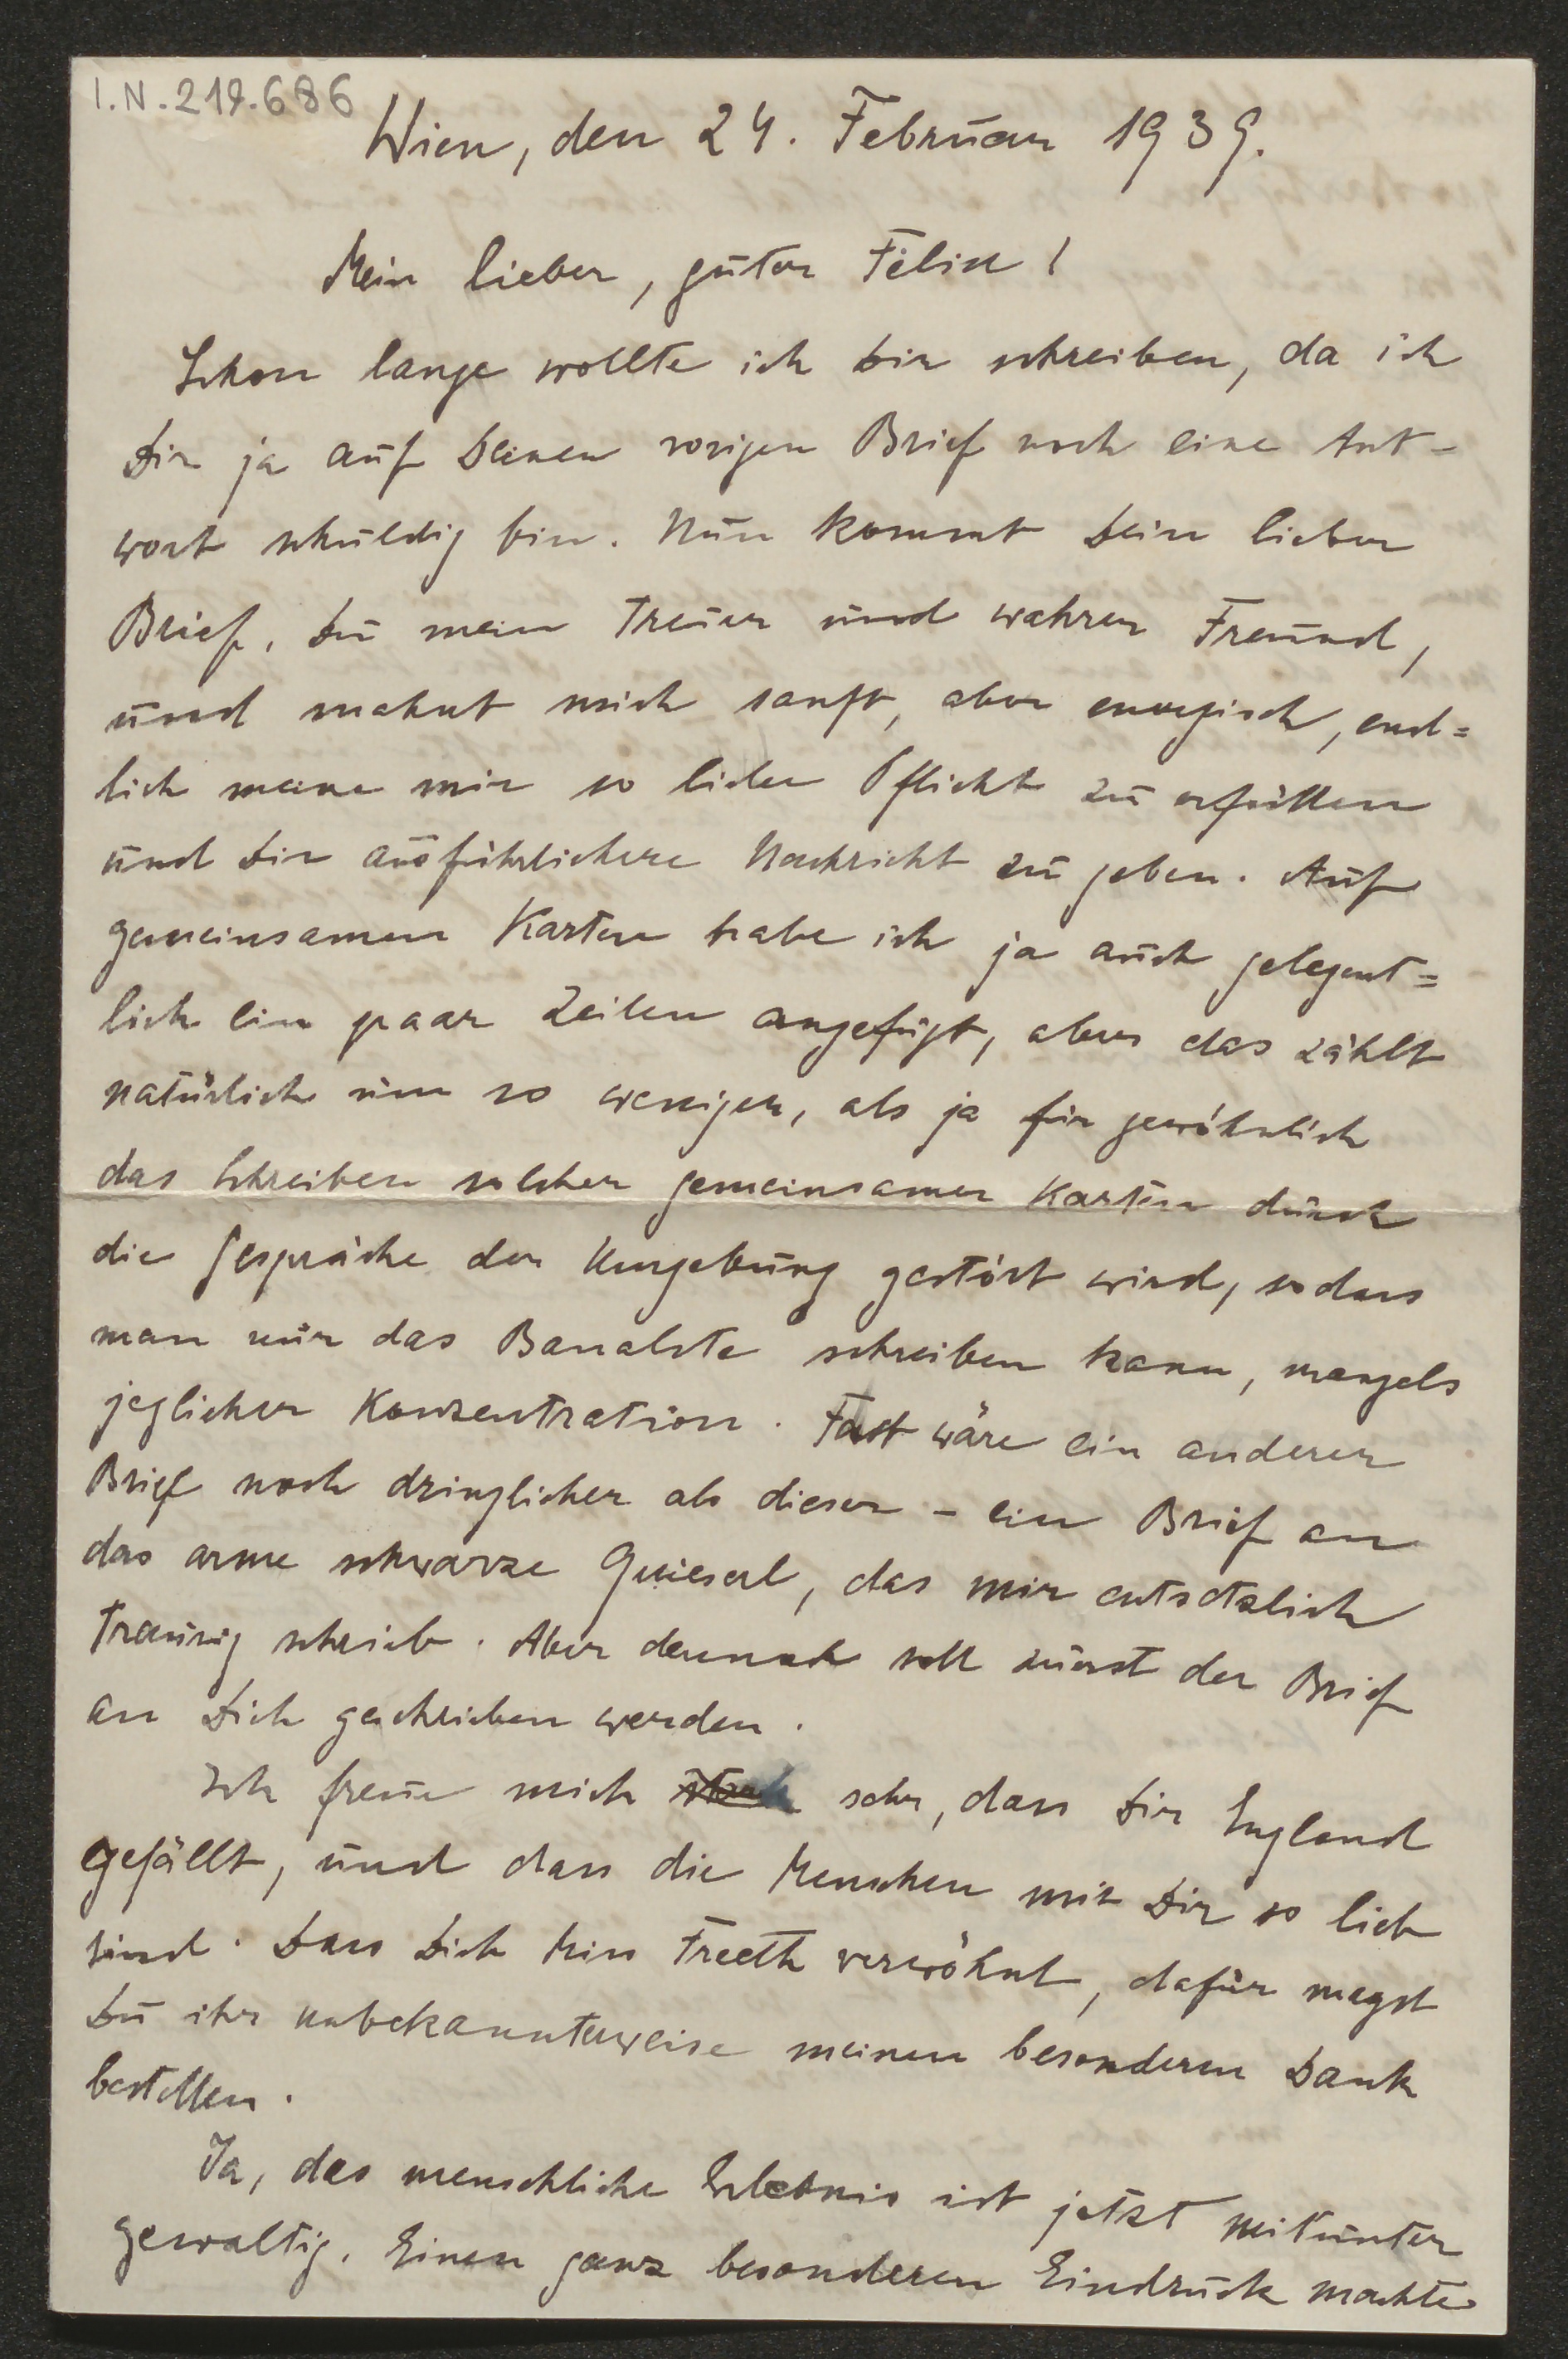 I.N. 219.686
Wien, den 24. Februar 1939.
Mein lieber, guter Felix!
Schon lange wollte ich Dir schreiben, da ich
Dir ja auf Deinen vorigen Brief noch eine Ant-
wort schuldig bin. Nun kommt Dein lieber
Brief, Du mein treuer und wahrer Freund,
und mahnt mich sanft, aber energisch, end=
lich meine mir so liebe Pflicht zu erfüllen
und Dir ausführlichere Nachricht zu geben. Auf
gemeinsamen Karten habe ich ja auch gelegent=
lich ein paar Zeilen angefügt, aber das zählt
natürlich um so weniger, als ja für gewöhnlich
das Schreiben solcher gemeinsamer Karten durch
die Gespräche der Umgebung gestört wird, sodass
man nur das Banalste schreiben kann, mangels
jeglicher Konzentration. Fast wäre ein anderer
Brief noch dringlicher als dieser – ein Brief an
das arme schwarze, das mir entsetzlich
traurig schrieb. Aber dennoch soll zuerst der Brief
an Dich geschrieben werden.
Ich freue mich sehr, dass Dir England
gefällt, und dass die Menschen mit Dir so lieb
sind. Dass Dich Miss Freeth verwöhnt, dafür magst
Du ihr unbekannterweise meinen besonderen Dank
bestellen.
Ja, das menschliche Erlebnis ist jetzt mitunter
gewaltig. Einen ganz besonderen Eindruck machte